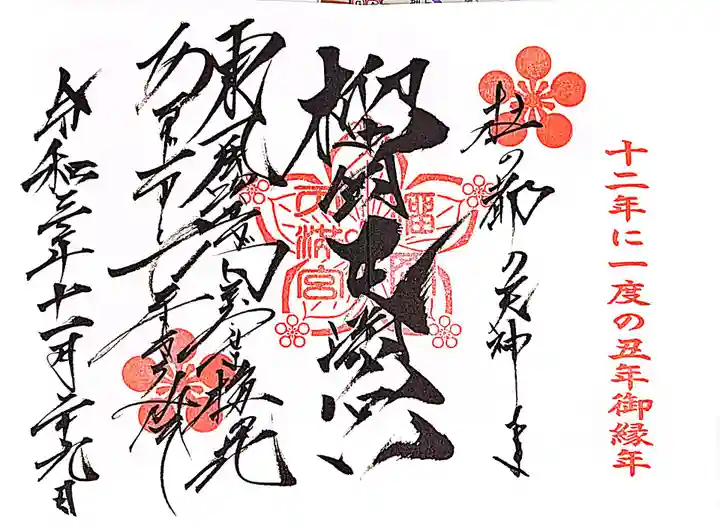 十二年に一度の丑年御縁年
杜の都の天神さま
榴岡天満宮
天満宮
東風吹かば匂ひおこせよ梅の花
あるじなしとて
令和三年十一月二十九日